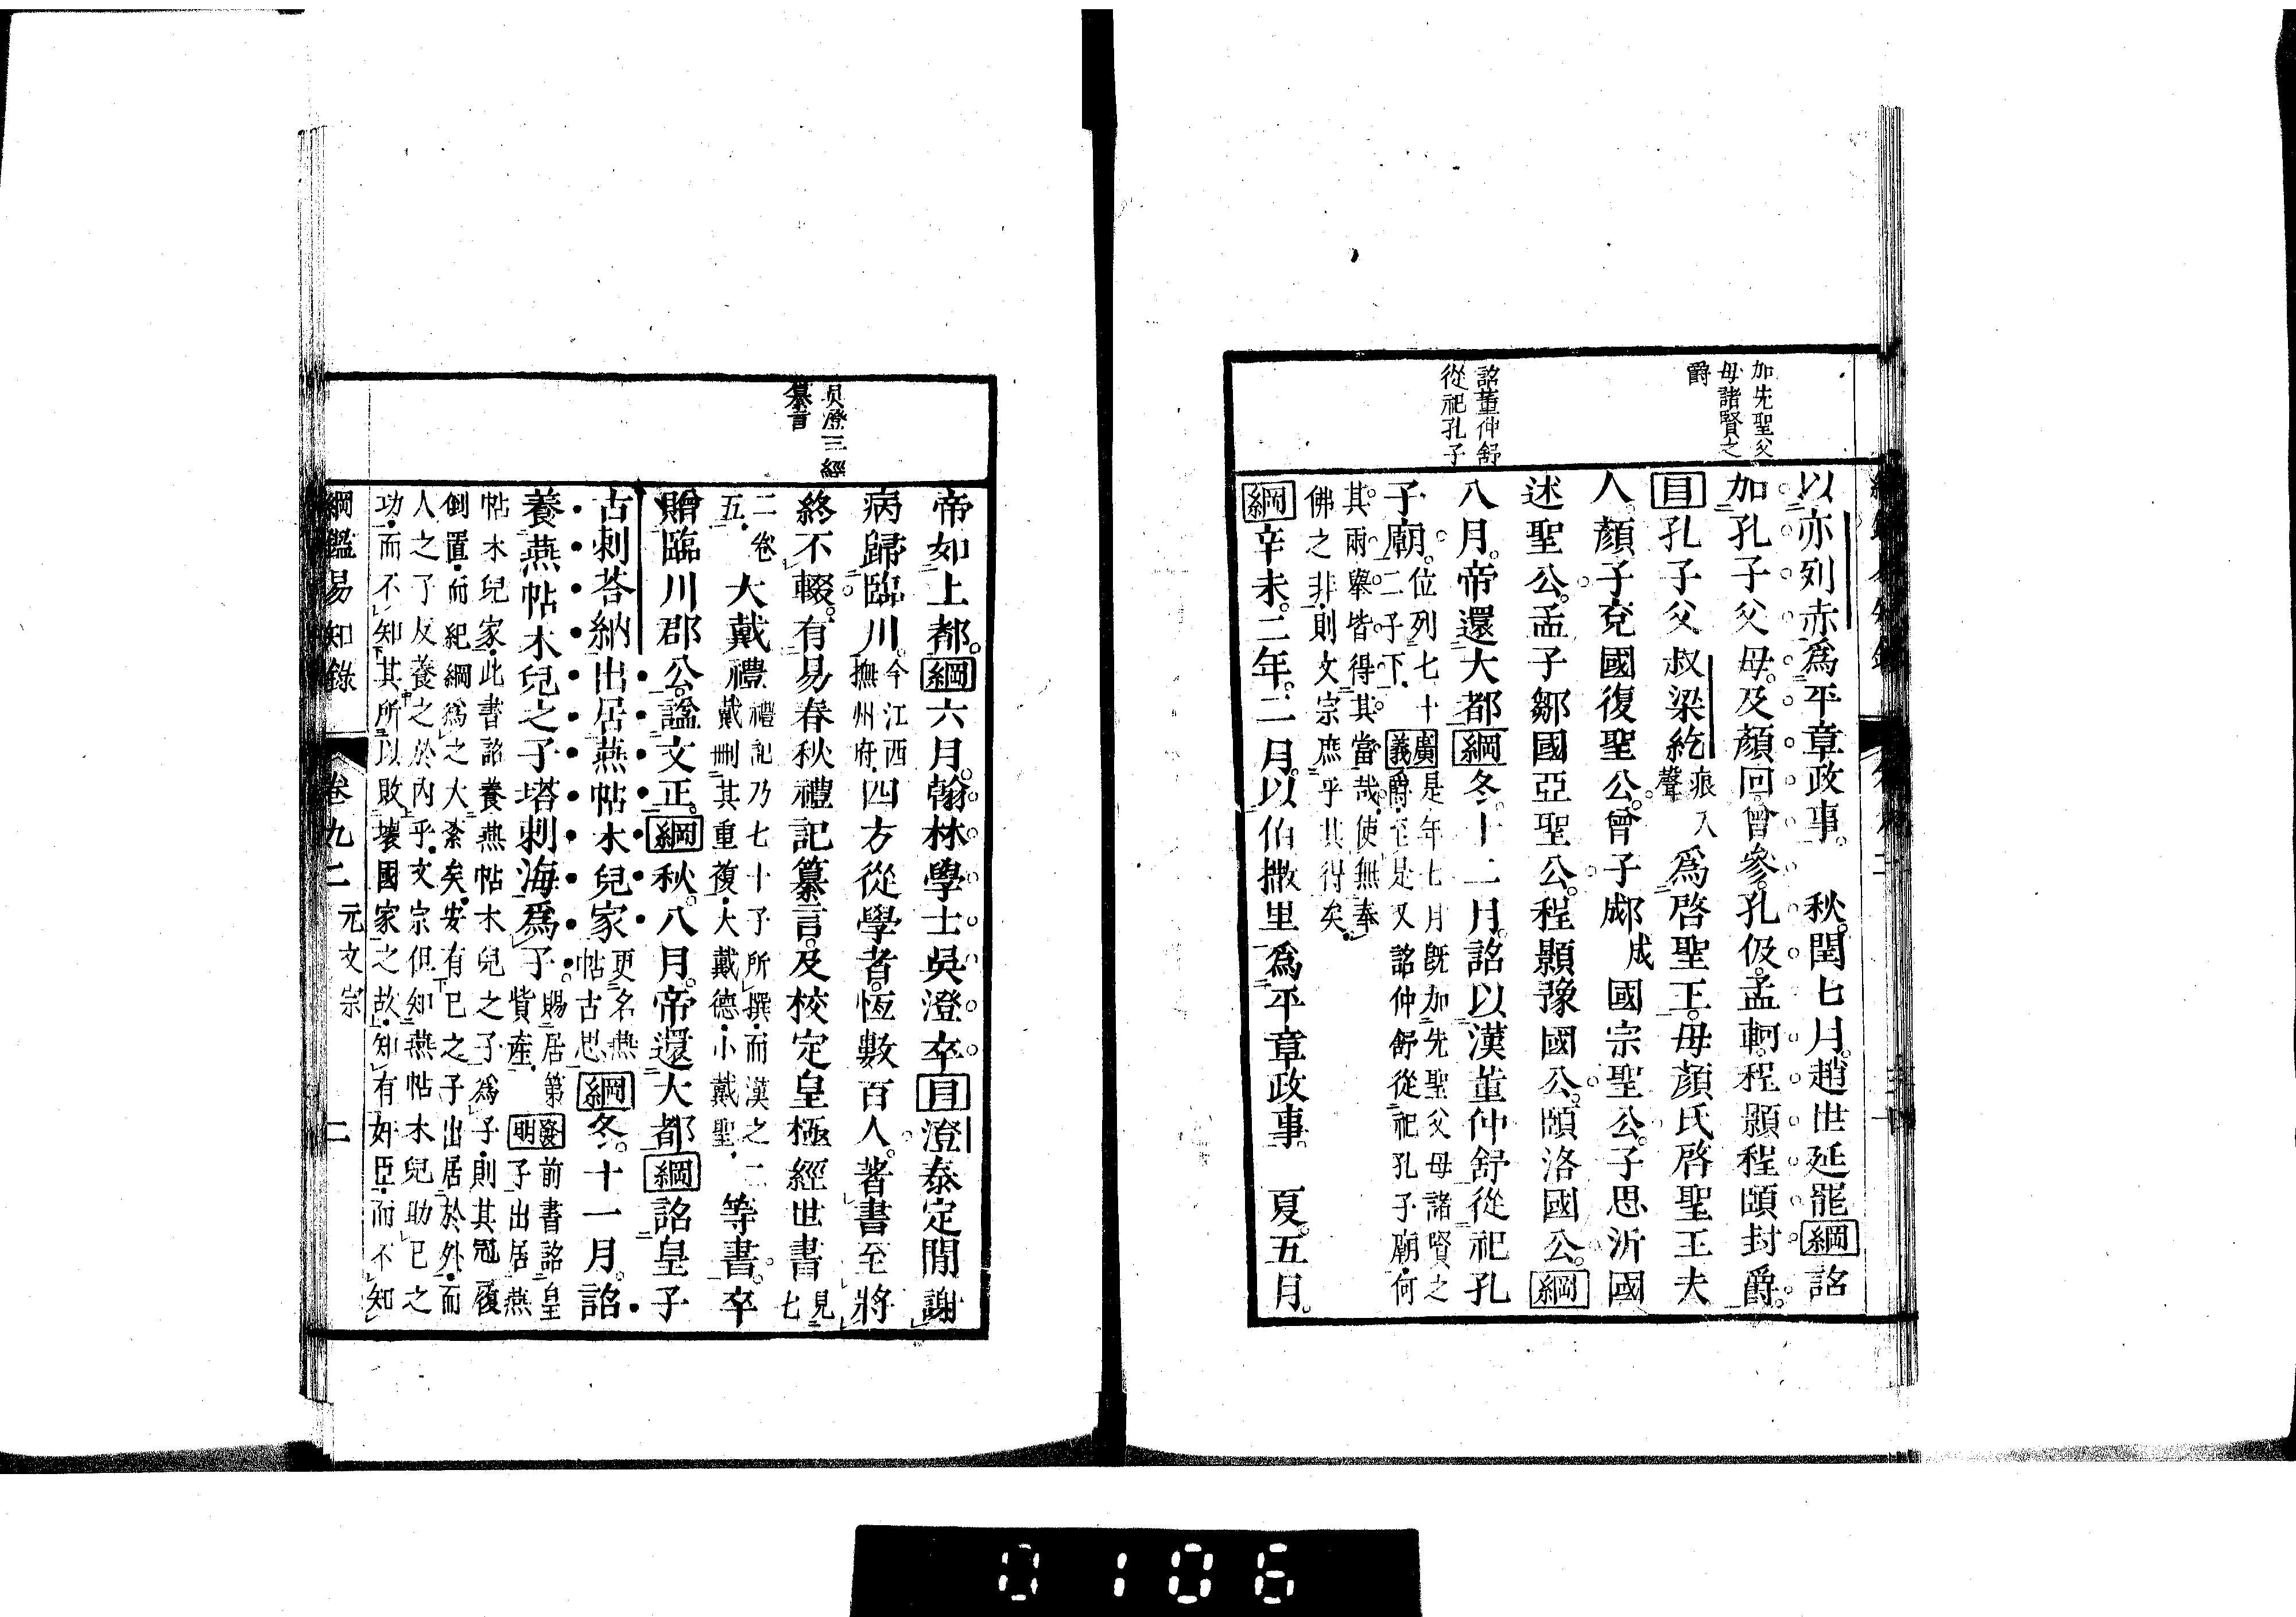 加先聖父
母諸賢之
爵
詔董仲舒
從祀孔子
以亦列赤爲平章政事。秋。閏七月。趙世延罷綱詔
加孔子父母。及顏回。曾參。孔伋。孟軻。程顥程頤封爵。
目孔子父叔梁紇痕入聲爲啓聖王。母顏氏啓聖王夫
人。顏子兗國復聖公。曾子郕成國宗聖公。子思沂國
述聖公。孟子鄒國亞聖公。程顥豫國公。頤洛國公。綱
八月。帝還大都綱冬。十二月。詔以漢董仲舒從祀孔
子廟。位列七十
二子下。廣義是年七月旣加先聖父母諸賢之
爵。至是又詔仲舒從祀孔子廟。何
其兩舉皆得其當哉。使無奉
佛之非。則文宗庶乎其得矣。
綱辛未。二年。二月。以伯撒里爲平章政事 夏。五月。
吳澄三經
纂言
帝如上都。綱六月。翰林學士吳澄卒目澄泰定閒謝
病歸臨川。今江西
撫州府。四方從學者。恆數百人。著書至將
終不輟。有易春秋禮記纂言。及校定皇極經世書見七
二卷
五。大戴禮禮記乃七十子所撰。而漢之二
戴刪其重複。大戴德。小戴聖。等書。卒
贈臨川郡公。諡文正。綱秋。八月。帝還大都綱詔皇子
古刺荅納出居燕帖木兒家更名燕
帖古思綱冬。十一月。詔
養燕帖木兒之子塔刺海爲子。賜居第
貲產。發明前書詔皇
子出居燕
帖木兒家。此書詔養燕帖木兒之子爲子。則其冠履
倒置。而紀綱爲之大紊矣。安有已之子出居於外。而
人之子反養之於內乎。文宗但知燕帖木兒助已之
功。而不知其所以敗壞國家之故。知有奸臣。而不知
綱鑑易知錄 卷九二 元文宗 二